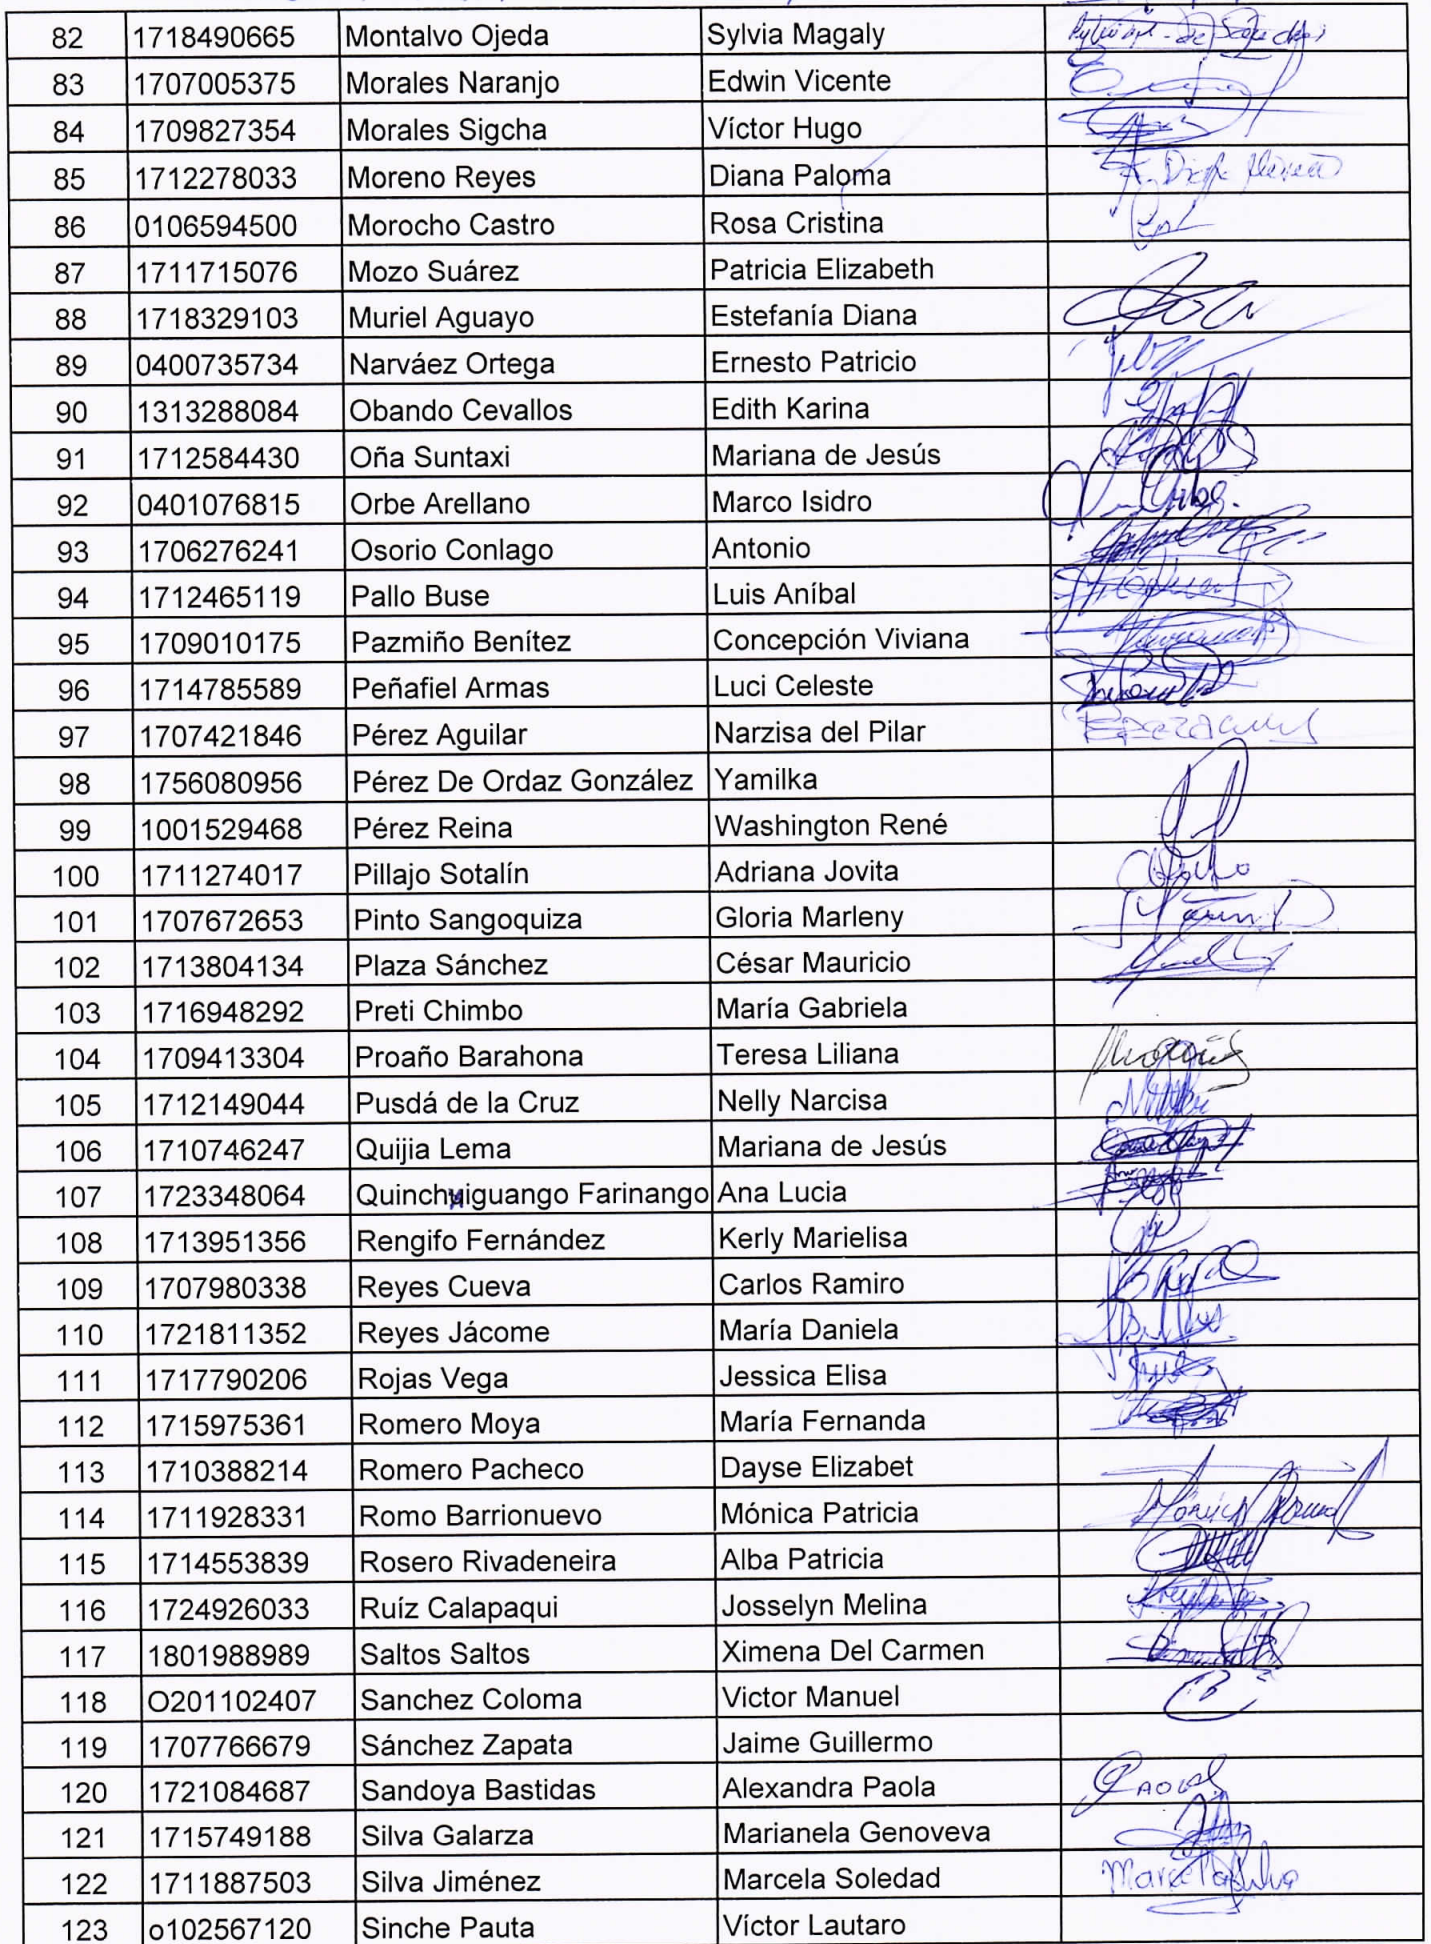 82 1718490665 Montalvo Ojeda Sylvia Magaly
83 1707005375 Morales Naranjo Edwin Vicente
84 1709827354 Morales Sigcha Víctor Hugo
85 1712278033 Moreno Reyes Diana Paloma
86 0106594500 Morocho Castro Rosa Cristina
87 1711715076 Mozo Suárez Patricia Elizabeth
88 1718329103 Muriel Aguayo Estefanía Diana
89 0400735734 Narváez Ortega Ernesto Patricio
90 1313288084 Obando Cevallos Edith Karina
91 1712584430 Oña Suntaxi Mariana de Jesús
92 0401076815 Orbe Arellano Marco Isidro
93 1706276241 Osorio Conlago Antonio
94 1712465119 Pallo Buse Luis Aníbal
95 1709010175 Pazmiño Benítez Concepción Viviana
96 1714785589 Peñafiel Armas Luci Celeste
97 1707421846 Pérez Aguilar Narzisa del Pilar
98 1756080956 Pérez De Ordaz González Yamilka
99 1001529468 Pérez Reina Washington René
100 1711274017 Pillajo Sotalín Adriana Jovita
101 1707672653 Pinto Sangoquiza Gloria Marleny
102 1713804134 Plaza Sánchez César Mauricio
103 1716948292 Preti Chimbo María Gabriela
104 1709413304 Proaño Barahona Teresa Liliana
105 1712149044 Pusdá de la Cruz Nelly Narcisa
106 1710746247 Quijia Lema Mariana de Jesús
107 1723348064 Farinango Ana Lucia
108 1713951356 Rengifo Fernández Kerly Marielisa
109 1707980338 Reyes Cueva Carlos Ramiro
110 1721811352 Reyes Jácome María Daniela
111 1717790206 Rojas Vega Jessica Elisa
112 1715975361 Romero Moya María Fernanda
113 1710388214 Romero Pacheco Dayse Elizabet
114 1711928331 Romo Barrionuevo Mónica Patricia
115 1714553839 Rosero Rivadeneira Alba Patricia
116 1724926033 Ruíz Calapaqui Josselyn Melina
117 1801988989 Saltos Saltos Ximena Del Carmen
118 O201102407 Sanchez Coloma Victor Manuel
119 1707766679 Sánchez Zapata Jaime Guillermo
120 1721084687 Sandoya Bastidas Alexandra Paola
121 1715749188 Silva Galarza Marianela Genoveva
122 1711887503 Silva Jiménez Marcela Soledad
123 o102567120 Sinche Pauta Víctor Lautaro